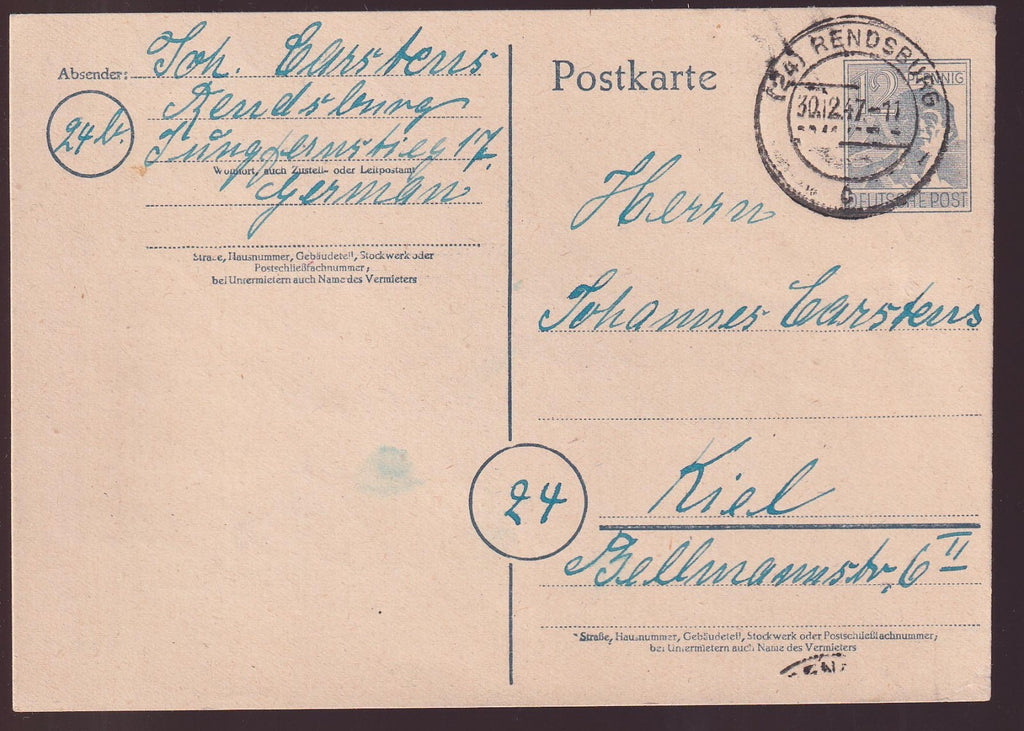 Absender: Joh. Carstens
24b.
Rendsburg
Jungfernstieg 17.
Wohnort, auch Zustell- oder Leitpostamt
German
Straße, Hausnummer, Gebäudeteil, Stockwerk oder
Postschließfachnummer;
bei Untermietern auch Name des Vermieters
Postkarte
(24) RENDSBURG
30.12.47-11
12 PFENNIG
DEUTSCHE POST
Herrn
Johannes Carstens
24
Kiel
Bellmannstr. 6 II
Straße, Hausnummer, Gebäudeteil, Stockwerk oder Postschließfachnummer;
bei Untermietern auch Name des Vermieters